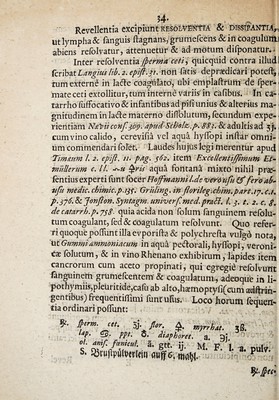 34.
Revellentia excipiunt RESOLVENTIA & DISSIPANTIA,
ut lympha & sanguis stagnans, grumescens & in coagulum
abiens resolvatur, attenuetur & ad motum disponatur.
Inter resolventia sperma ceti, quicquid contra illud
scribat Langius lib. 2. epist. 31. non satis deprædicari potest,
tum externè in lacte coagulato, ubi emplastrum de sper-
mate ceti extollitur, tum internè variis in casibus. In ca-
tarrho suffocativo & infantibus ad pisi unius & alterius ma-
gnitudinem in lacte materno dissolutum, secundum expe-
rientiam apud & adultis ad ʒj.
cum vino calido, cerevisiâ vel aquâ hyssopi instar omni-
um commendari solet. Laudes hujus legi merentur apud
Timæum l. 2. epist. 11. pag. 362. item Excellentissimum Et-
müllerum aquâ fontanâ mixto nihil præ-
sentius experti sunt socer Hoffmanni l. de vero usu & fero ab-
usu medic. chimic. p. 135. Grüling. in florileg. chim. part. 17. c. 1.
p. 376. & Jonston. Syntagm. univers. med. pract. l. 3. t. 2. c. 8.
de catarrh. p. 758 quia acida non solum sanguinem resolu-
tum coagulant, sed & coagulatum resolvunt. Quo refer-
ri quoque possunt illa evporista & polychresta vulgò nota,
ut Gummi ammoniacum in aquâ pectorali, hyssopi, veroni-
cæ solutum, & in vino Rhenano exhibitum, lapides item
cancrorum cum aceto propinati, qui egregiè resolvunt
sanguinem grumescentem & coagulatum, adeoque in li-
pothymiis, pleuritide, casu ab alto, hæmoptysi (cum adstrin-
gentibus) frequentissimi sunt usus. Loco horum sequen-
tia ordinari possunt:
℞. sperm. cet. ʒj. flor. myrrhat.
lap. ppt. diaphoret. a. ℈j.
ol. anis. funicul. a. gtt. ij. M. F. l. a. pulv.
S. Brustpülverlein auff 6. mahl.
℞. spec.